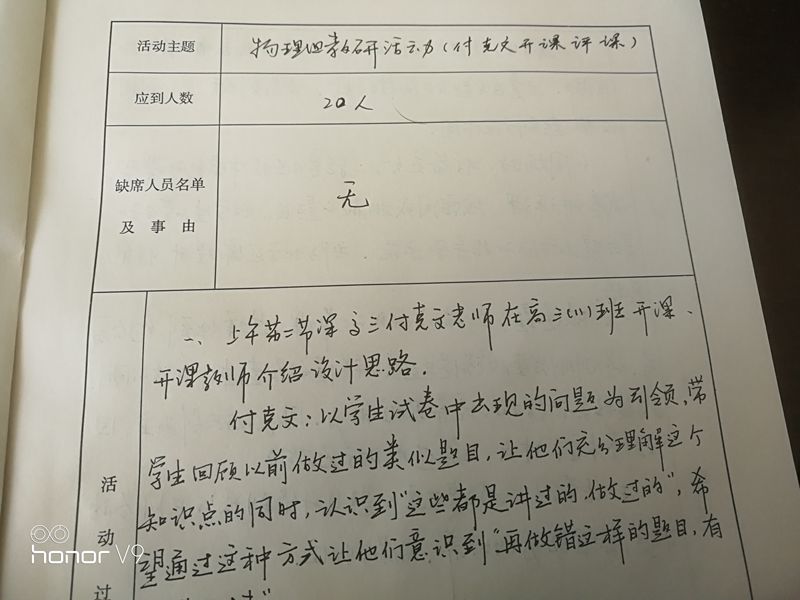 活动主题 物理组教研活动(付克文开课评课)
应到人数 20人
缺席人员名单
及事由
无
一、上午第二节课高三付克文老师在高三(11)班开课、
开课教师介绍设计思路.
付克文:以学生试卷中出现的问题为引领,带
学生回顾以前做过的类似题目,让他们充分理解这个
知识点的同时,认识到"这些都是讲过的、做过的",希
望通过这种方式让他们意识到"再做错这样的题目,有
活
动
过
honor V9